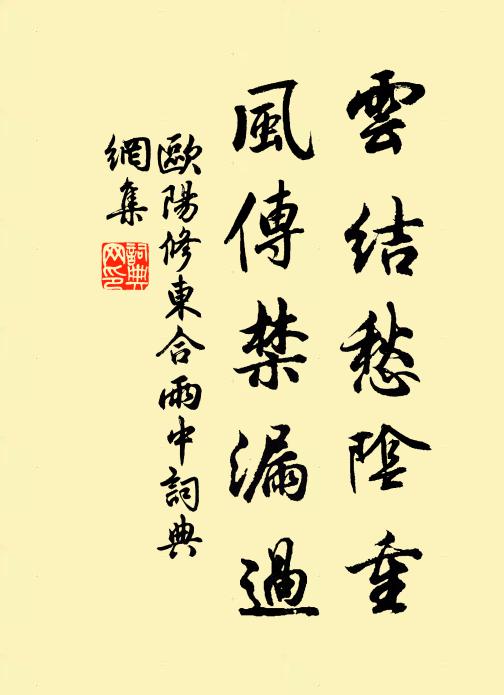 雲結愁陰重
風傳禁漏過
歐陽修東合雨中詞典
網集
詞典
网印